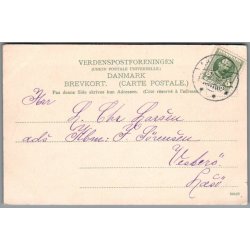 VERDENSPOSTFORENINGEN
(UNION POSTALE UNIVERSELLE)
DANMARK
BREVKORT. (CARTE POSTALE.)
Paa denne Side skrives kun Adressen. (Côté réservé à l'adresse.)
Herr
L. Chr. Larsen
adr Kbm: J. Sørensen
Vesterø
Læsø